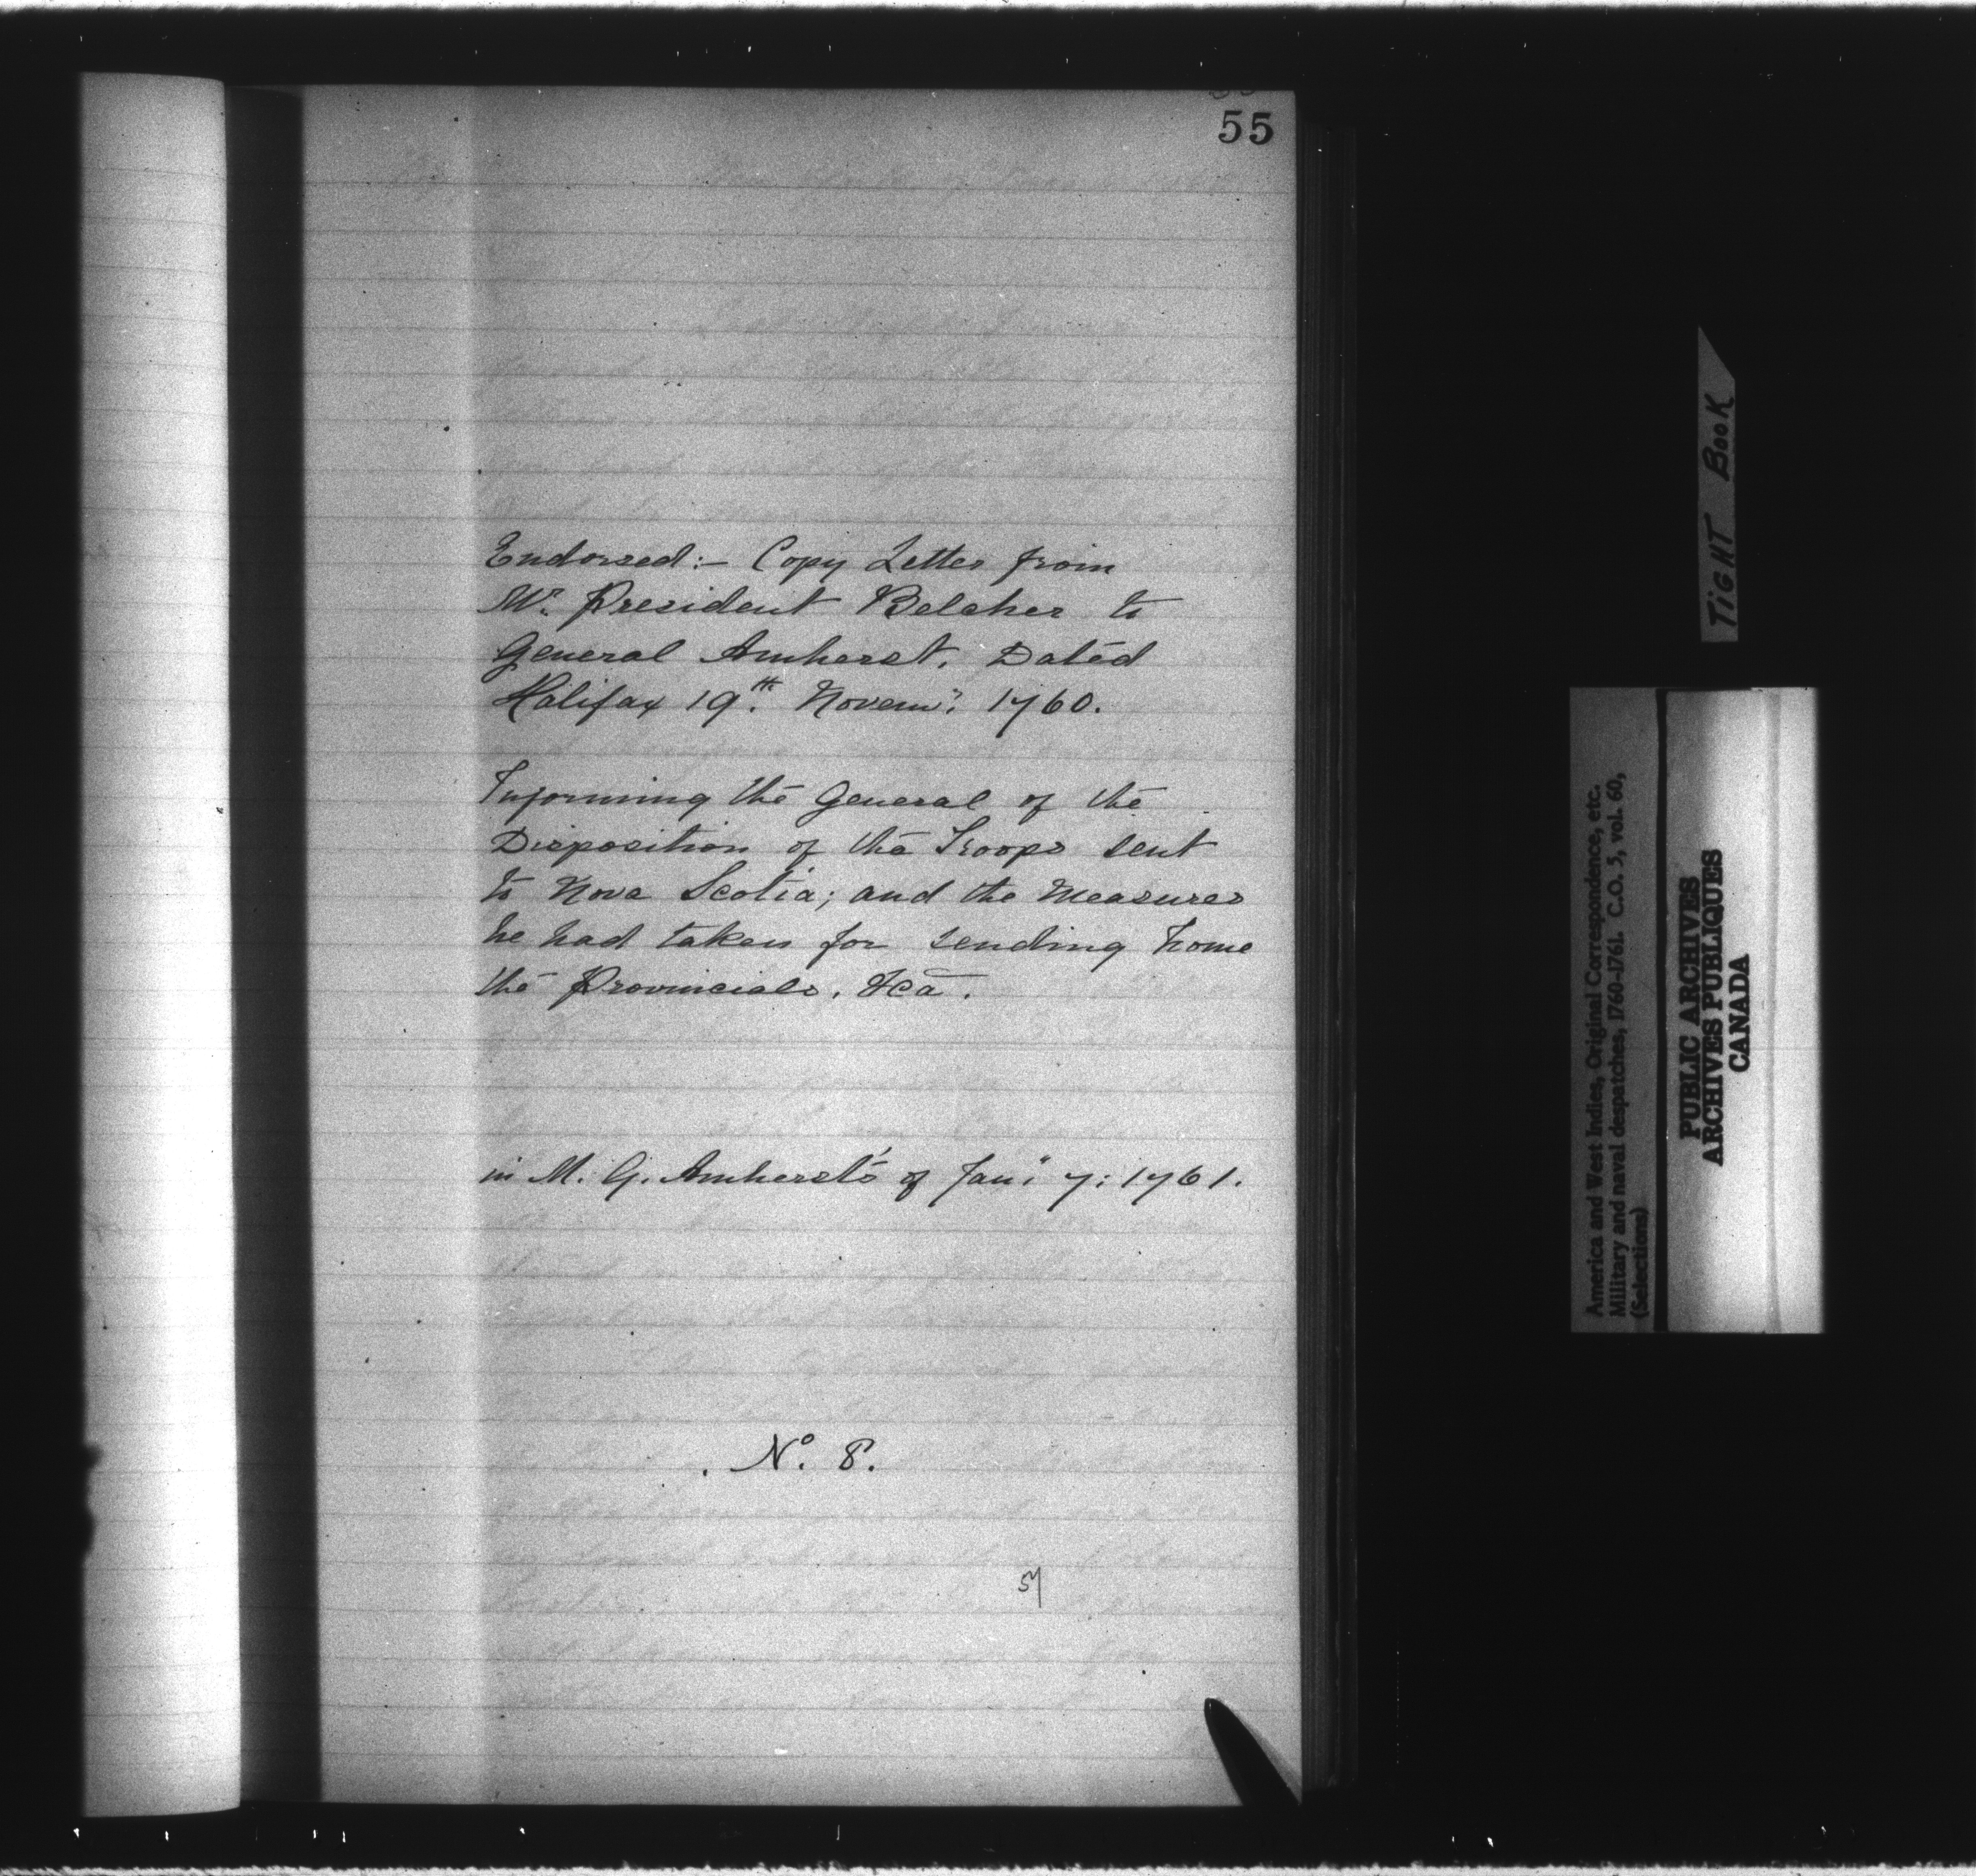 55
Endorsed:- Copy Letter from
Mr. President Belcher to
General Amherst. Dated
Halifax 19th. Novem:r 1760.
Informing the General of the
Disposition of the Troops sent
to Nova Scotia; and the Measures
he had taken for sending home
the Provincials. &ca.
in M. G. Amherst's of Jan:y 7: 1761.
No. 8.
TIGHT BOOK
America and West Indies, Original Correspondence, etc.
Military and naval despatches, 1760-1761. C.O. 5, vol. 60,
(Selections)
PUBLIC ARCHIVES
ARCHIVES PUBLIQUES
CANADA